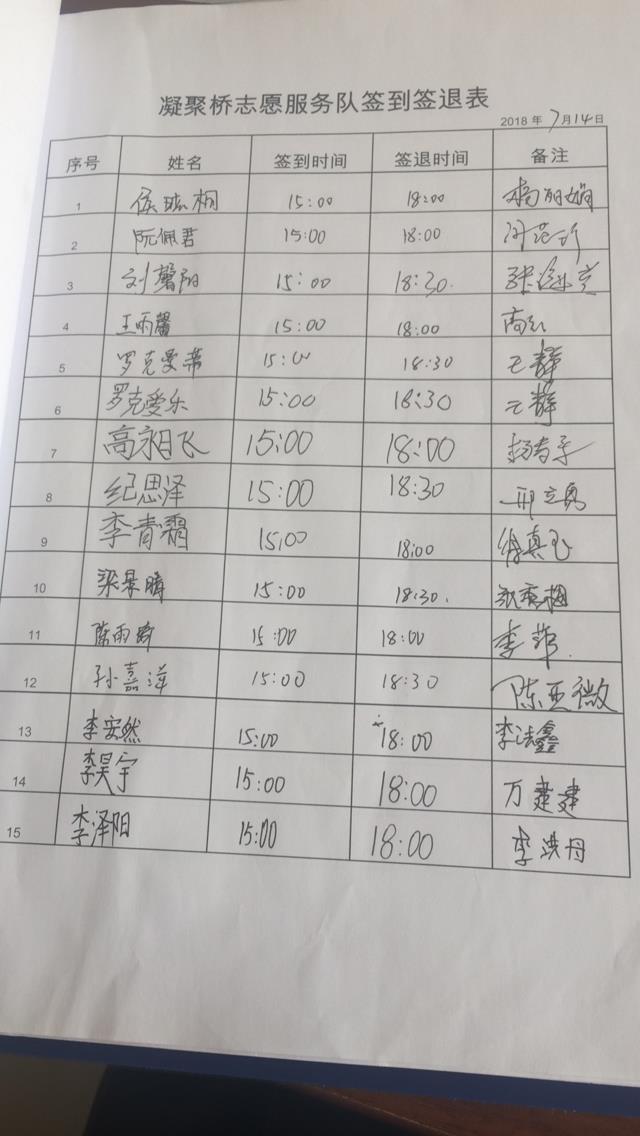 凝聚桥志愿服务队签到签退表
2018 年 7月14日
序号 姓名 签到时间 签退时间 备注
1 15:00 18:00
2 阮佩君 15:00 18:00
3 刘馨阳 15:00 18:30.
4 王雨馨 15:00 18:00
5 罗克曼蒂 15:00 18:30 王静
6 罗克爱乐 15:00 18:30 王静
7 高永日飞 15:00 18:00
8 纪思泽 15:00 18:30
9 李青霜 15:00 18:00 徐真玉
10 梁景晴 15:00 18:30.
11 陈雨 15:00 18:00 李菲.
12 孙嘉泽 15:00 18:30 陈亚微
13 李安然 15:00 18:00 李法鑫
14 李昊宇 15:00 18:00 万建建
15 李泽阳 15:00 18:00 李洪丹